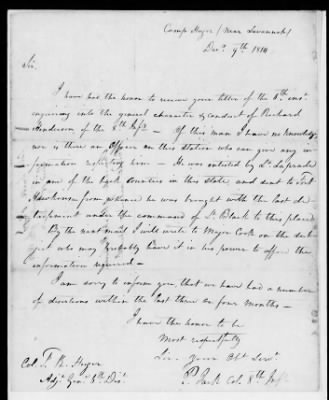 Camp Hager (Near Savannah)
Decr 9th 1814
Sir.
I have had the honor to receive your letter of the 8th inst
enquiring into the general character & conduct of Richard
Henderson of the 8th Infy — Of this man I have no knowledge
nor is there an Officer on this station who can give any in
formation respecting him — He was enlisted by Lt
in one of the back counties in this state, and sent to Fort
Hawkins from whence he was brought with the last de
tachment under the command of Lt Black to this place
By the next mail I will write to Major Cook on the sub
ject who may probably have it in his power to afford the
information required —
I am sorry to inform you, that we have had a number
of desertions within the last three or four months —
I have the honor to be
Most respectfully
Sir Your Obt Servt
P. Jack Col. 8th Infy
Col. F. K. Huger
Adjt Genl 6th Dist